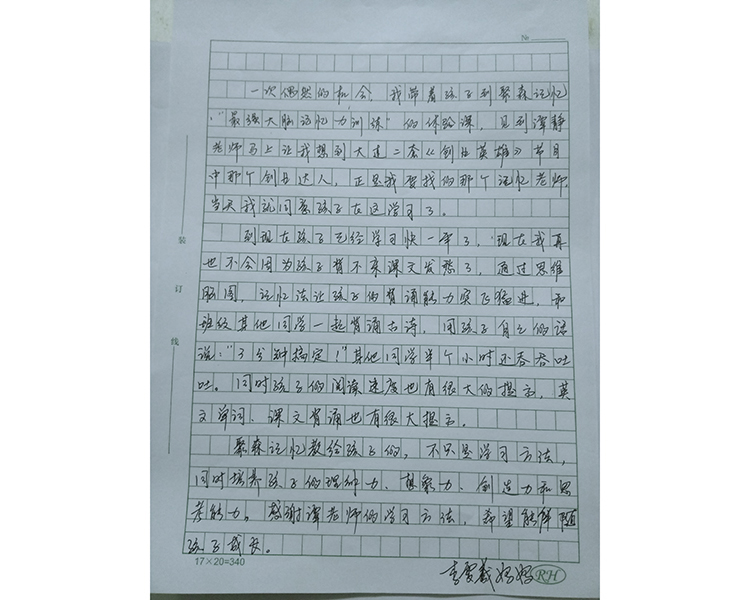 №
一次偶然的机会,我带着孩子到聚森记忆
:"最强大脑记忆力训练"的体验课,见到谭静
老师马上让我想到大连二套《创业英雄》节目
中那个创业达人,正是我要找的那个记忆老师,
当天我就同意孩子在这学习了。
到现在孩子已经学习快一年了,现在我再
也不会因为孩子背不来课文发愁了,通过思维
脑图,记忆法让孩子的背诵能力突飞猛进,和
班级其他同学一起背诵古诗,用孩子自己的话
说:"3分钟搞定!"其他同学半个小时还吞吞吐
吐。同时孩子的阅读速度也有很大的提高,英
文单词、课文背诵也有很大提高。
聚森记忆教给孩子的,不只是学习方法,
同时培养孩子的理解力、想象力、创造力和思
考能力。感谢谭老师的学习方法,希望能伴随
孩子成长。
妈妈
装
订
线
17×20=340
RH